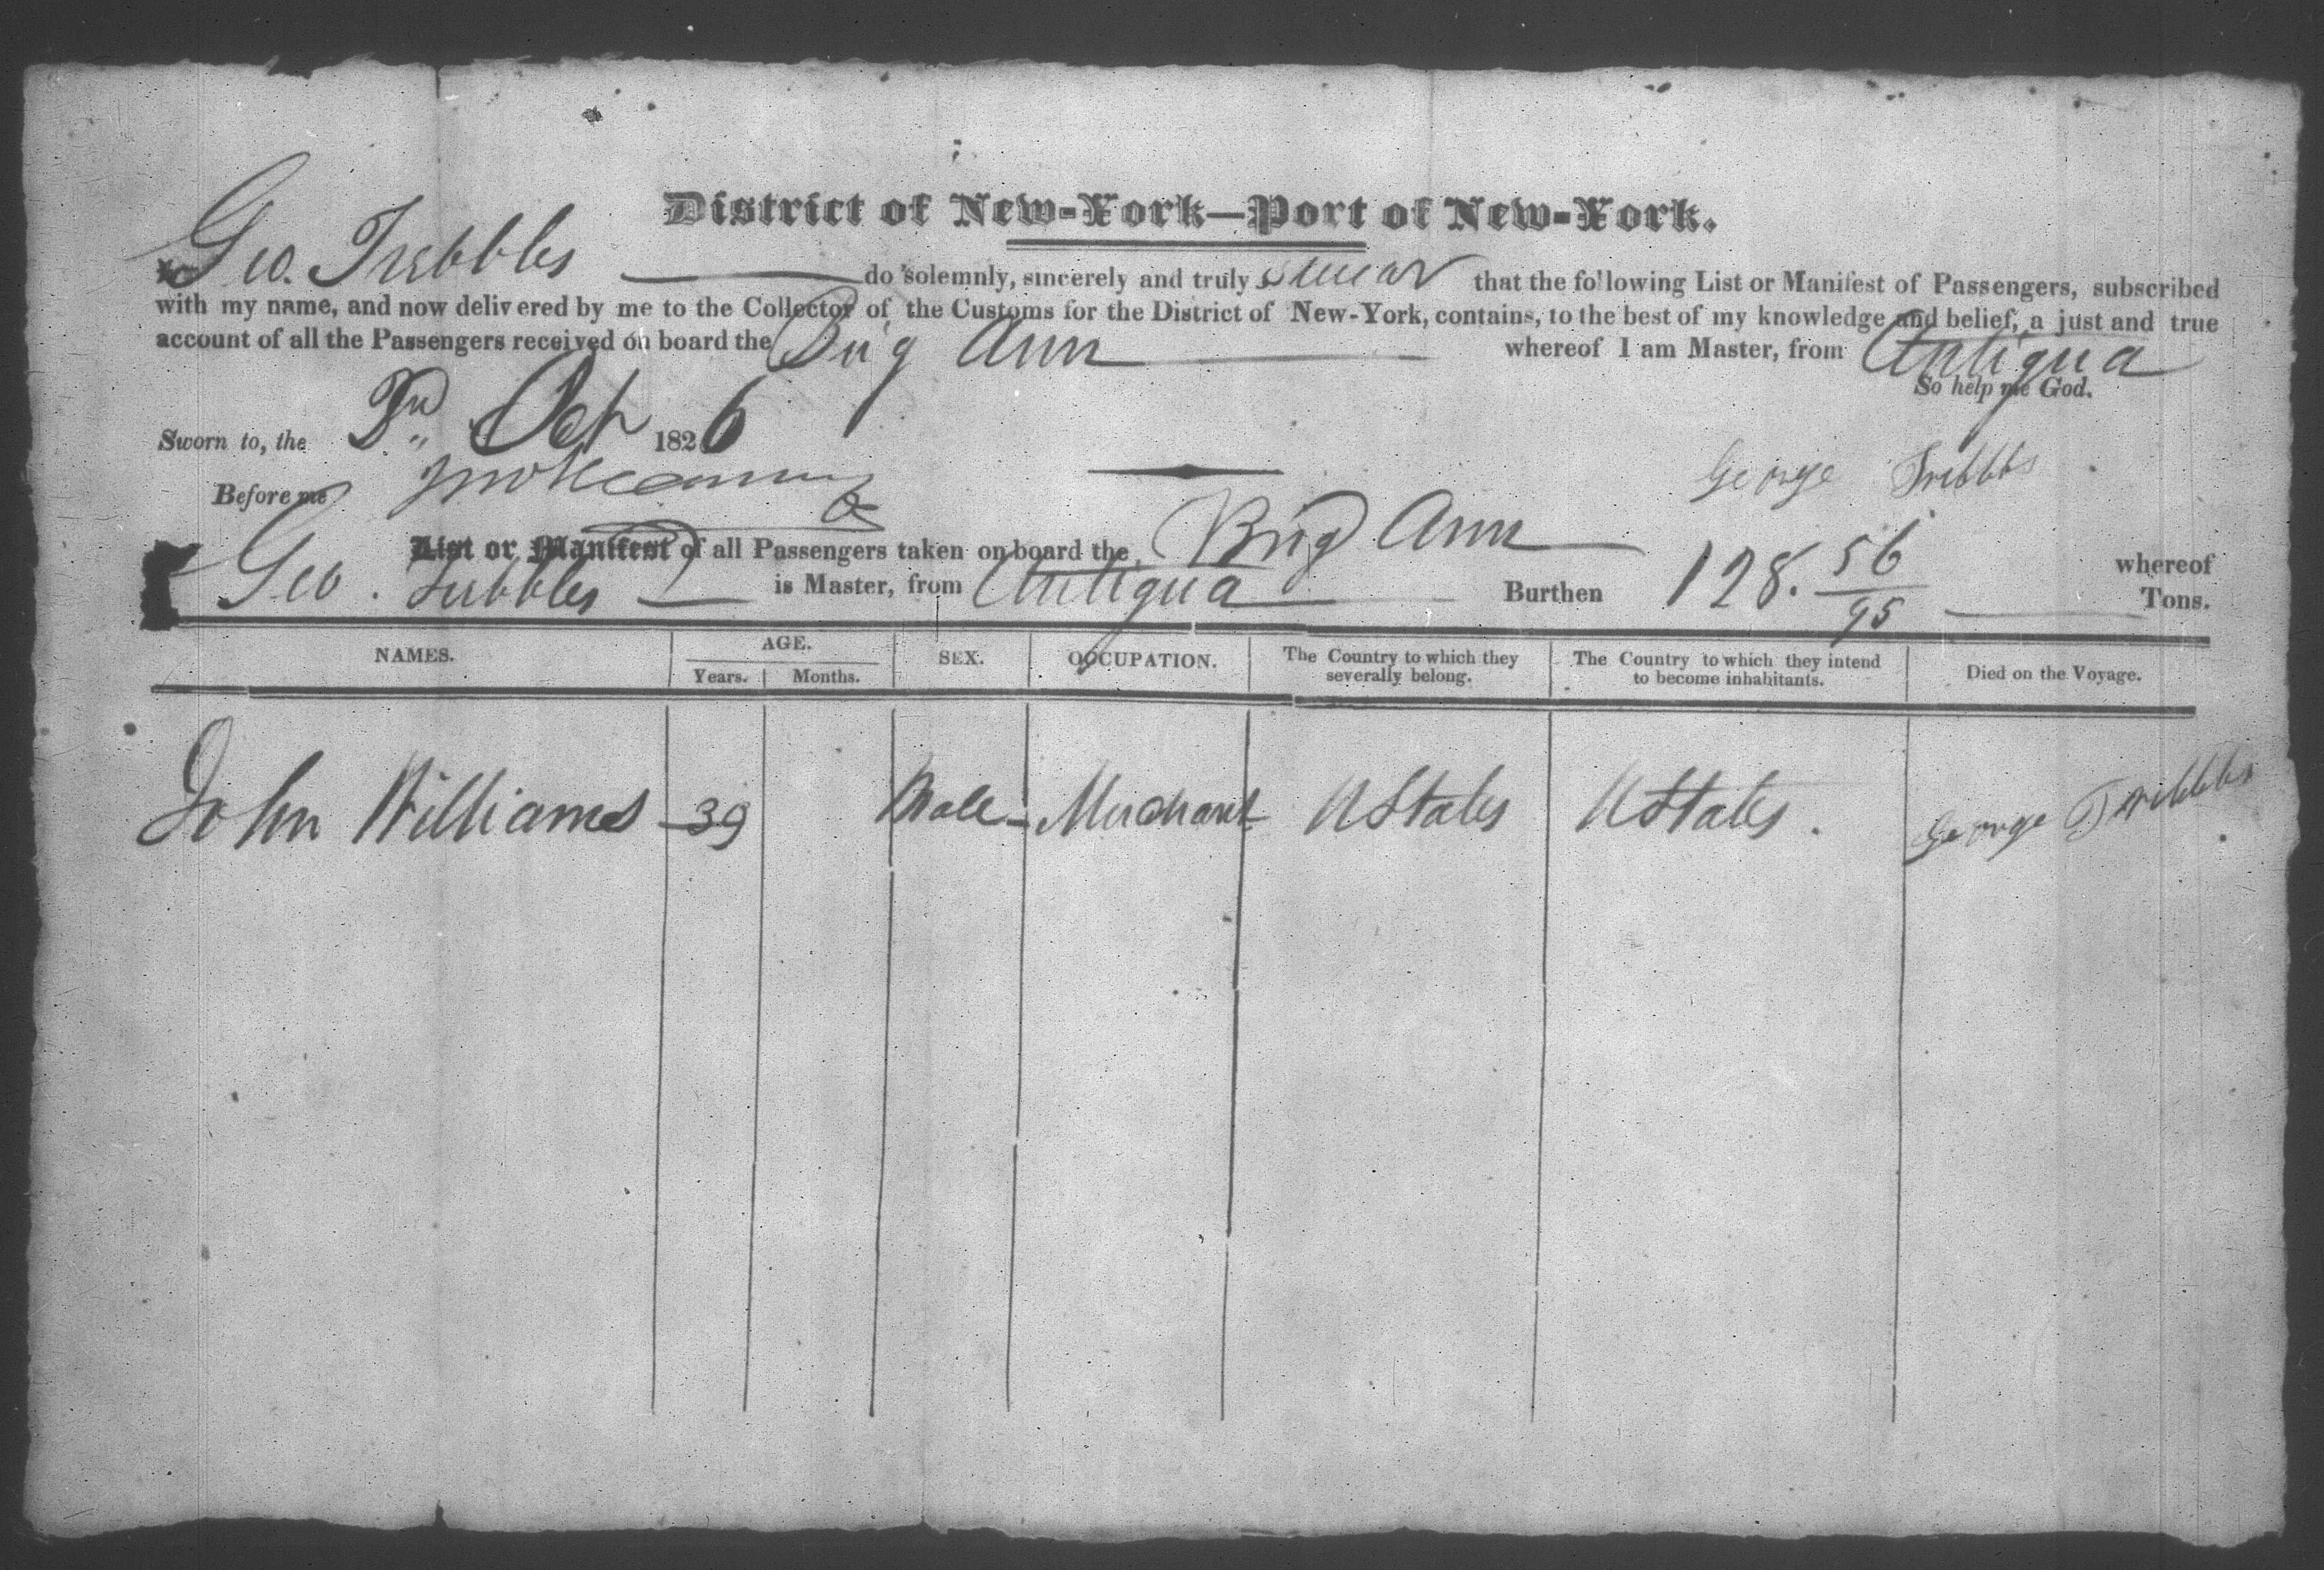 District of New-York—Port of New-York.
I, Geo. Tribbles do solemnly, sincerely and truly swear that the following List or Manifest of Passengers, subscribed
with my name, and now delivered by me to the Collector of the Customs for the District of New-York, contains, to the best of my knowledge and belief, a just and true
account of all the Passengers received on board the Brig Ann whereof I am Master, from Antigua
So help me God.
Sworn to, the Oct 1826
Before me
George Tribbles
List or Manifest of all Passengers taken on board the Brig Ann whereof
Geo. Tribbles is Master, from Antigua Burthen 128. 56/95 Tons.
NAMES. AGE. Years. Months. SEX. OCCUPATION. The Country to which they severally belong. The Country to which they intend to become inhabitants. Died on the Voyage.
John Williams 39 Male Merchant UStates UStates.
George Tribbles